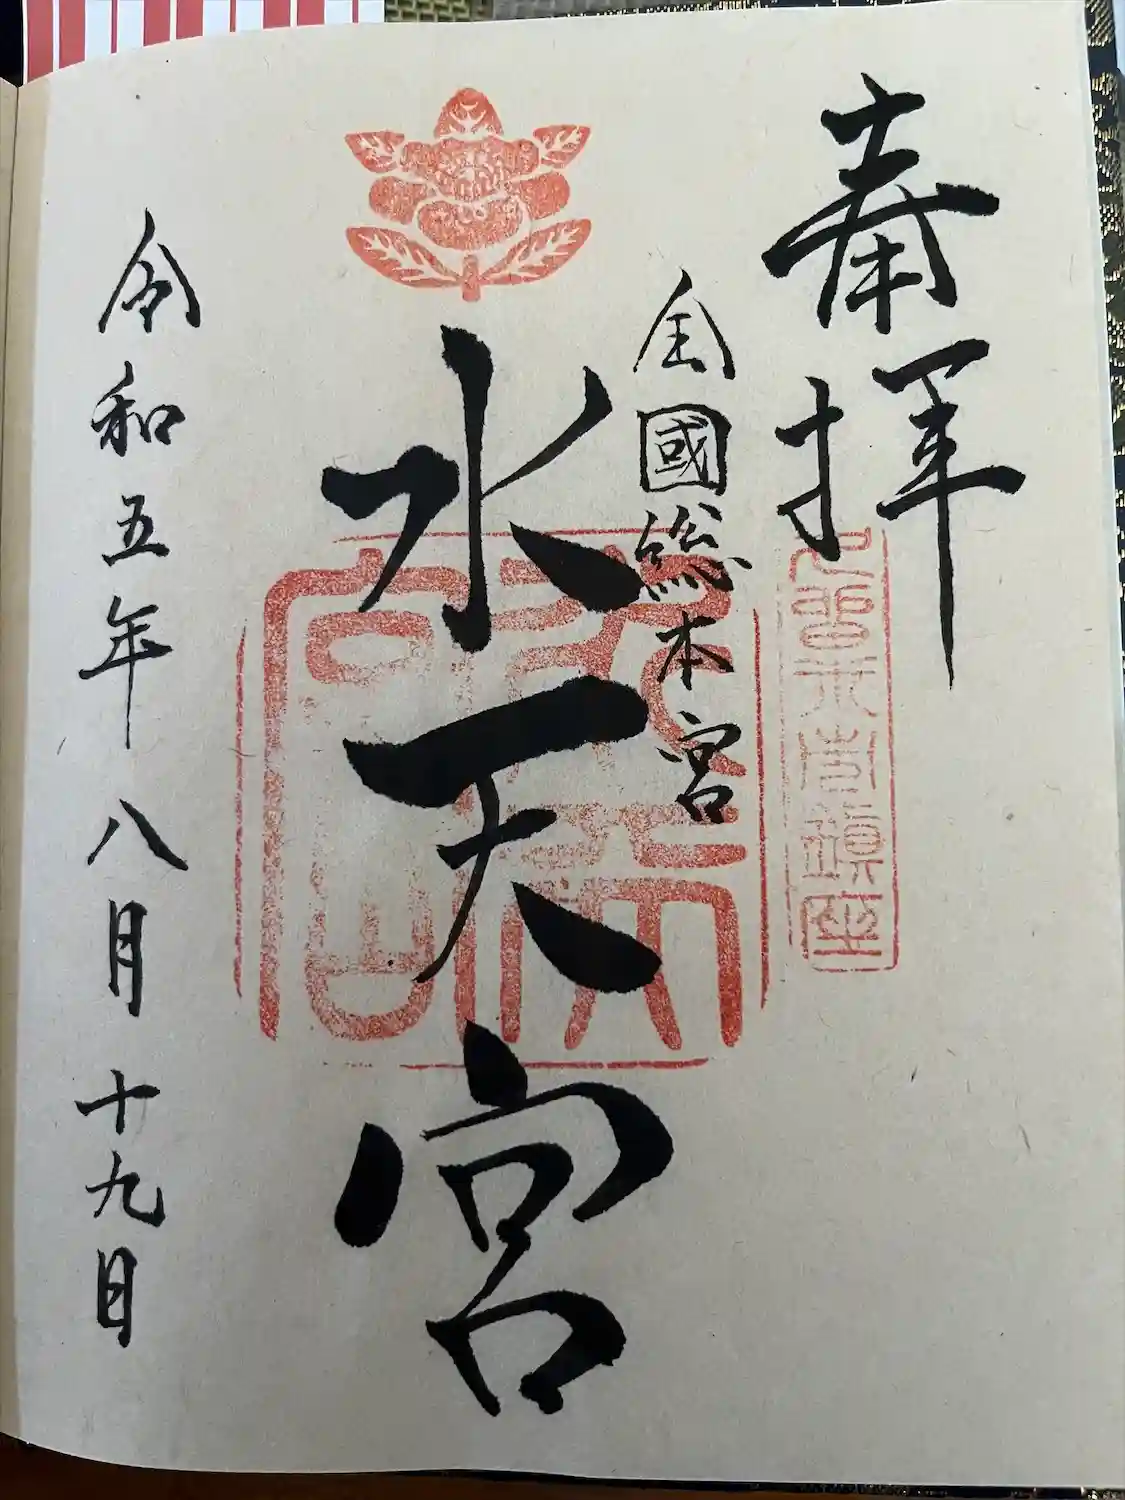 奉拝
全國総本宮
水天宮
令和五年八月十九日